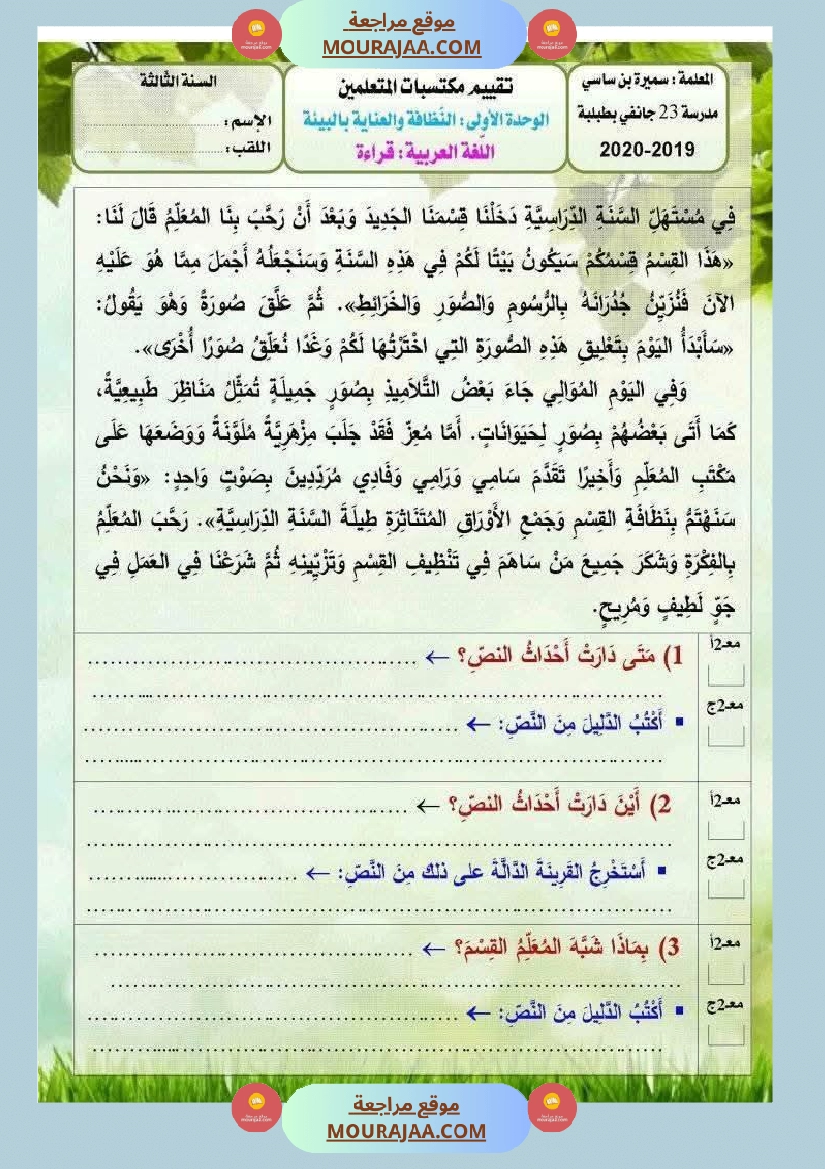 موقع مراجعة
MOURAJAA.COM
المعلمة : سميرة بن ساسي
مدرسة 23 جانفي بطبلبة
2020-2019
تقييم مكتسبات المتعلمين
الوحدة الأولى : النّظافة والعناية بالبيئة
اللّغة العربية : قراءة
السنة الثّالثة
الإسم : ........................
اللقب : ........................
فِي مُسْتَهَلِّ السَّنَةِ الدِّرَاسِيَّةِ دَخَلْنَا قِسْمَنَا الجَدِيدَ وَبَعْدَ أَنْ رَحَّبَ بِنَا المُعَلِّمُ قَالَ لَنَا:
«هَذَا القِسْمُ قِسْمُكُمْ سَيَكُونُ بَيْتًا لَكُمْ فِي هَذِهِ السَّنَةِ وَسَنَجْعَلُهُ أَجْمَلَ مِمَّا هُوَ عَلَيْهِ
الآنَ فَنُزَيِّنُ جُدْرَانَهُ بِالرُّسُومِ وَالصُّوَرِ وَالخَرَائِطِ». ثُمَّ عَلَّقَ صُورَةً وَهْوَ يَقُولُ:
«سَأَبْدَأُ اليَوْمَ بِتَعْلِيقِ هَذِهِ الصُّورَةِ التِي اخْتَرْتُهَا لَكُمْ وَغَدًا نُعَلِّقُ صُوَرًا أُخْرَى».
وَفِي اليَوْمِ المُوَالِي جَاءَ بَعْضُ التَّلَامِيذِ بِصُوَرٍ جَمِيلَةٍ تُمَثِّلُ مَنَاظِرَ طَبِيعِيَّةً،
كَمَا أَتَى بَعْضُهُمْ بِصُوَرٍ لِحَيَوَانَاتٍ. أَمَّا مُعِزّ فَقَدْ جَلَبَ مِزْهَرِيَّةً مُلَوَّنَةً وَوَضَعَهَا عَلَى
مَكْتَبِ المُعَلِّمِ وَأَخِيرًا تَقَدَّمَ سَامِي وَرَامِي وَفَادِي مُرَدِّدِينَ بِصَوْتٍ وَاحِدٍ: «وَنَحْنُ
سَنَهْتَمُّ بِنَظَافَةِ القِسْمِ وَجَمْعِ الأَوْرَاقِ المُتَنَاثِرَةِ طِيلَةَ السَّنَةِ الدِّرَاسِيَّةِ». رَحَّبَ المُعَلِّمُ
بِالفِكْرَةِ وَشَكَرَ جَمِيعَ مَنْ سَاهَمَ فِي تَنْظِيفِ القِسْمِ وَتَزْيِينِهِ ثُمَّ شَرَعْنَا فِي العَمَلِ فِي
جَوٍّ لَطِيفٍ وَمُرِيحٍ.
مع2أ
1) مَتَى دَارَتْ أَحْدَاثُ النصّ؟ ← ........................
........................
مع2ج
▪ أَكْتُبُ الدَّلِيلَ مِنَ النَّصّ: ← ........................
........................
مع2أ
2) أَيْنَ دَارَتْ أَحْدَاثُ النصّ؟ ← ........................
........................
مع2ج
▪ أَسْتَخْرِجُ القَرِينَةَ الدَّالَّةَ على ذلك مِنَ النَّصّ: ← ........................
........................
مع2أ
3) بِمَاذَا شَبَّهَ المُعَلِّمُ القِسْمَ؟ ← ........................
........................
مع2ج
▪ أَكْتُبُ الدَّلِيلَ مِنَ النَّصّ: ← ........................
........................
موقع مراجعة
MOURAJAA.COM